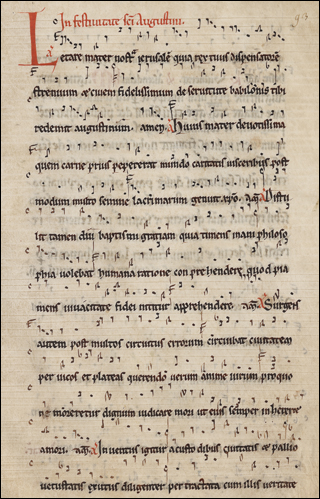 In festivitate sci Augustini.
Letare mater nostra ierusalem quia rex tuus dispensatorem
strenuum & civem fidelissimum de servitute babilonis tibi
redemit augustinum. amen. Huius mater devotissima
quem carne prius pepererat mundo caritatis visceribus post
modum multo semine lacrimarum genuit xpo. am. Distu
lit tamen diu baptismi gratiam quia timens mani philoso
phia volebat humana ratione conprehendere quod pia
mens vivacitate fidei nititur apprehendere. am. Surgens
autem post multos circuitus errorum circuibat civitatem
per vicos et plateas querendo verum anime virum pro quo
ne moreretur dignum iudicare mori ut eius semper inhereret
amori. am. Inventus igitur a custodibus civitatis & pallio
vetustatis exutus diligenter pertractata cum illis veritate